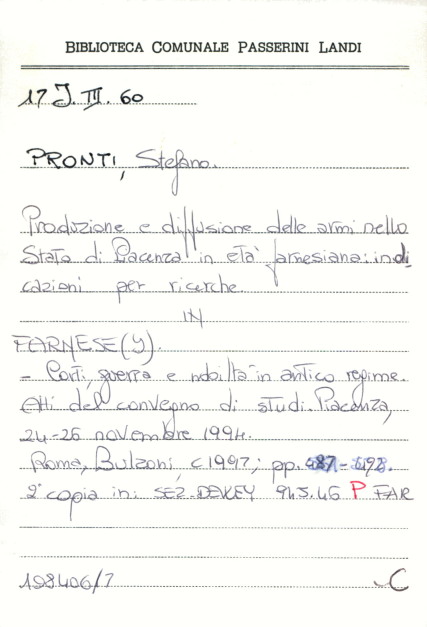 BIBLIOTECA COMUNALE PASSERINI LANDI
17 J. III. 60
PRONTI, Stefano.
Produzione e diffusione delle armi nello
Stato di Piacenza in età farnesiana: indi
cazioni per ricerche.
IN
FARNESE (I).
- Corti, guerra e nobiltà in antico regime.
Atti del convegno di studi. Piacenza,
24-26 novembre 1994.
Roma, Bulzoni, c1997; pp. 487-492.
2ª copia in: SEZ. DEWEY 945.46 P FAR
198406/7
C